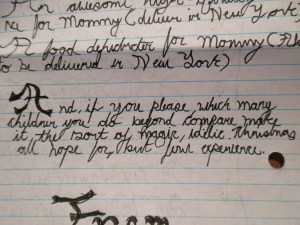 An awesome
for Mommy (deliver in New York)
A food dehydrator for Mommy
to be delivered in New York)
And, if you please, which many
children you do beyond compare, make
it the sort of
all hope for, but few experience.
From